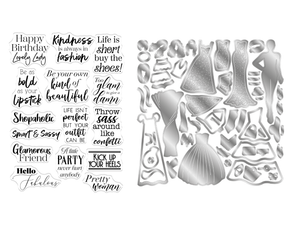 Happy
Birthday
Lovely Lady
Kindness
is always in
fashion
Life is
short
buy the
shoes!
Be as
bold
as your
Lipstick
Be your own
kind of
beautiful
Too
glam
to give a
damn
Shopaholic
Smart & Sassy
Life isn't
PERFECT
but your
outfit
can be
Throw
sass
around
like
confetti
Glamorous
Friend
A little
PARTY
never hurt
anybody
KICK UP
YOUR HEELS
Hello
Fabulous
Pretty
woman